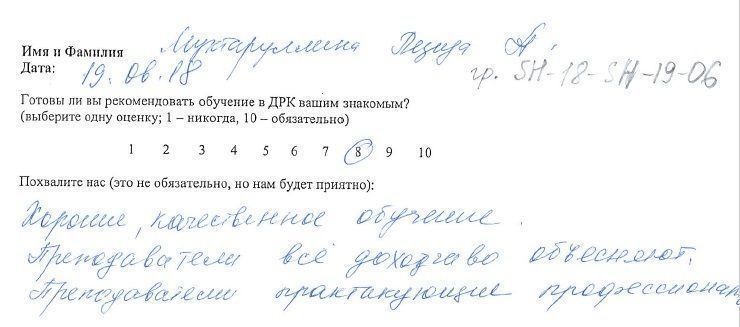 Имя и Фамилия Мухтаруллина А.
Дата: 19.06.18 гр. SH-18-SH-19-06
Готовы ли вы рекомендовать обучение в ДРК вашим знакомым?
(выберите одну оценку; 1 – никогда, 10 – обязательно)
1 2 3 4 5 6 7 8 9 10
Похвалите нас (это не обязательно, но нам будет приятно):
Хорошее, качественное обучение.
Преподаватели всё доходчиво объесняют.
Преподаватели практикующие профессионал